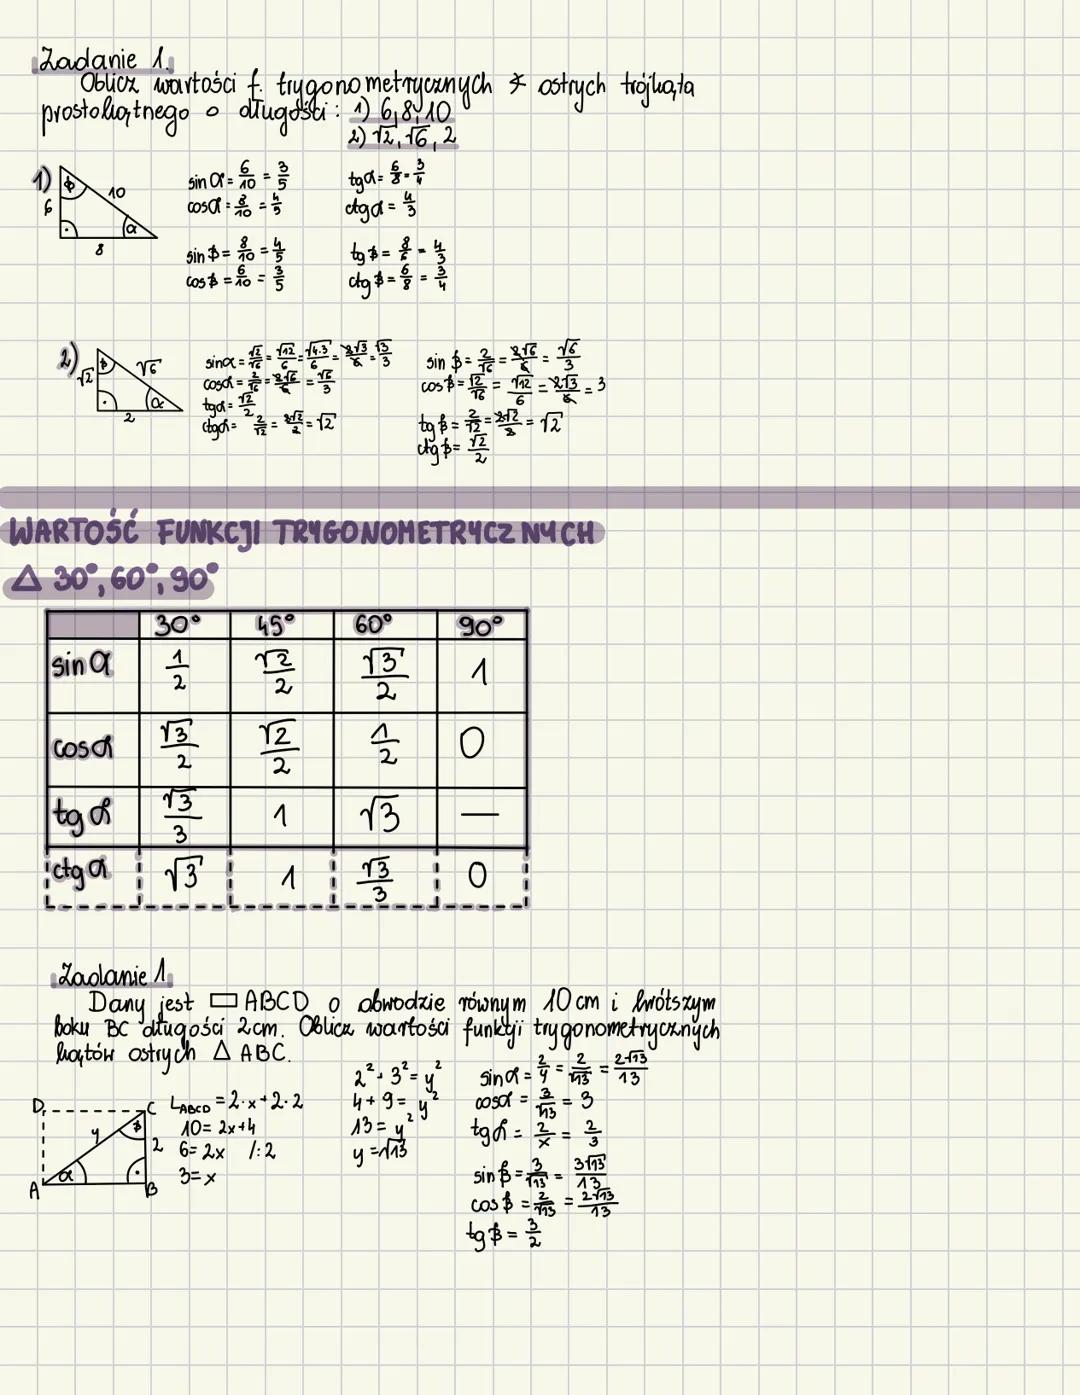 Zadanie 1.
Oblicz wartości f. trygonometrycznych ∢ ostrych trójkąta
prostokątnego o długości: 1) 6,8,10
2) √2, √6, 2
1)
β
10
6
α
8
sin α = 6/10 = 3/5
cos α = 8/10 = 4/5
sin β = 8/10 = 4/5
cos β = 6/10 = 3/5
tg α = 6/8 = 3/4
ctg α = 4/3
tg β = 8/6 = 4/3
ctg β = 6/8 = 3/4
2)
β
√6
√2
α
2
sin α = √2/√6 = √12/6 = √4·3/6 = 2√3/6 = √3/3
cos α = 2/√6 = 2√6/6 = √6/3
tg α = √2/2
ctg α = 2/√2 = 2√2/2 = √2
sin β = 2/√6 = 2√6/6 = √6/3
cos β = √2/√6 = √12/6 = 2√3/6 = 3
tg β = 2/√2 = 2√2/2 = √2
ctg β = √2/2
WARTOŚĆ FUNKCJI TRYGONOMETRYCZNYCH
△ 30°, 60°, 90°
30° 45° 60° 90°
sin α 1/2 √2/2 √3/2 1
cos α √3/2 √2/2 1/2 0
tg α √3/3 1 √3 —
ctg α √3 1 √3/3 0
Zadanie 1.
Dany jest ▭ ABCD o obwodzie równym 10 cm i krótszym
boku BC długości 2 cm. Oblicz wartości funkcji trygonometrycznych
kątów ostrych △ ABC.
D
C
y
β
2
α
A
B
L ABCD = 2·x + 2·2
10 = 2x+4
6 = 2x /:2
3 = x
2² + 3² = y²
4 + 9 = y²
13 = y²
y = √13
sin α = 2/y = 2/√13 = 2√13/13
cos α = 3/√13 = 3
tg α = 2/x = 2/3
sin β = 3/√13 = 3√13/13
cos β = 2/√13 = 2√13/13
tg β = 3/2